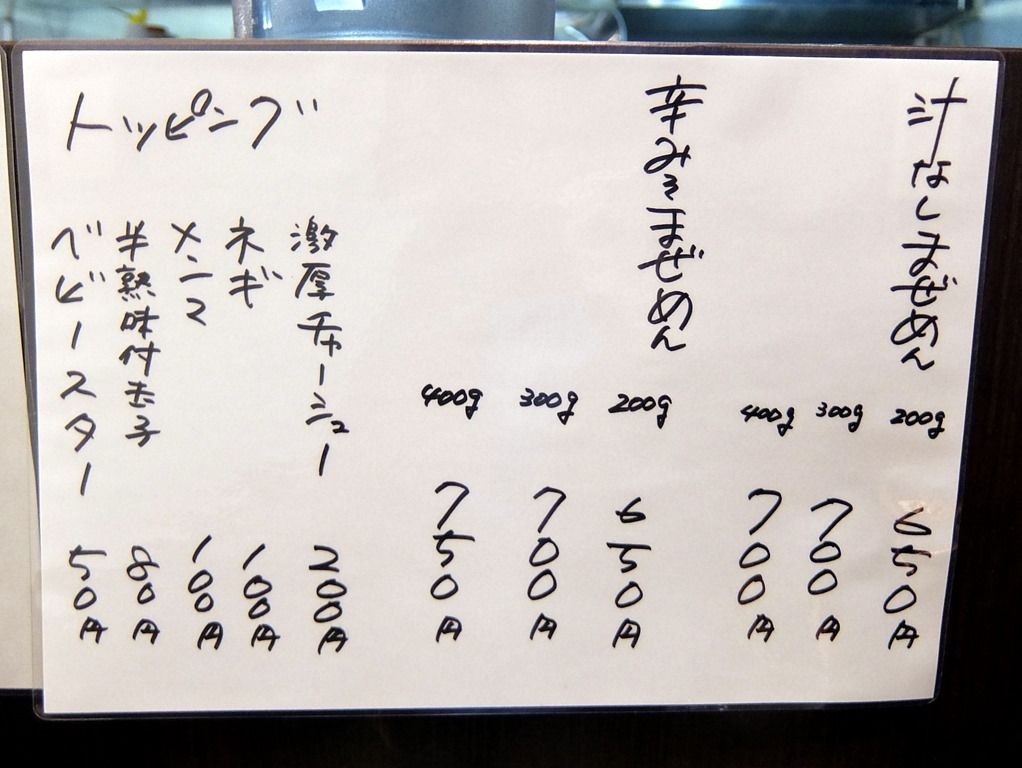 汁なしまぜめん
200g 650円
300g 700円
400g 700円
辛みそまぜめん
200g 650円
300g 700円
400g 750円
トッピング
激厚チャーシュー 200円
ネギ 100円
メンマ 100円
半熟味付玉子 80円
ベビースター 50円